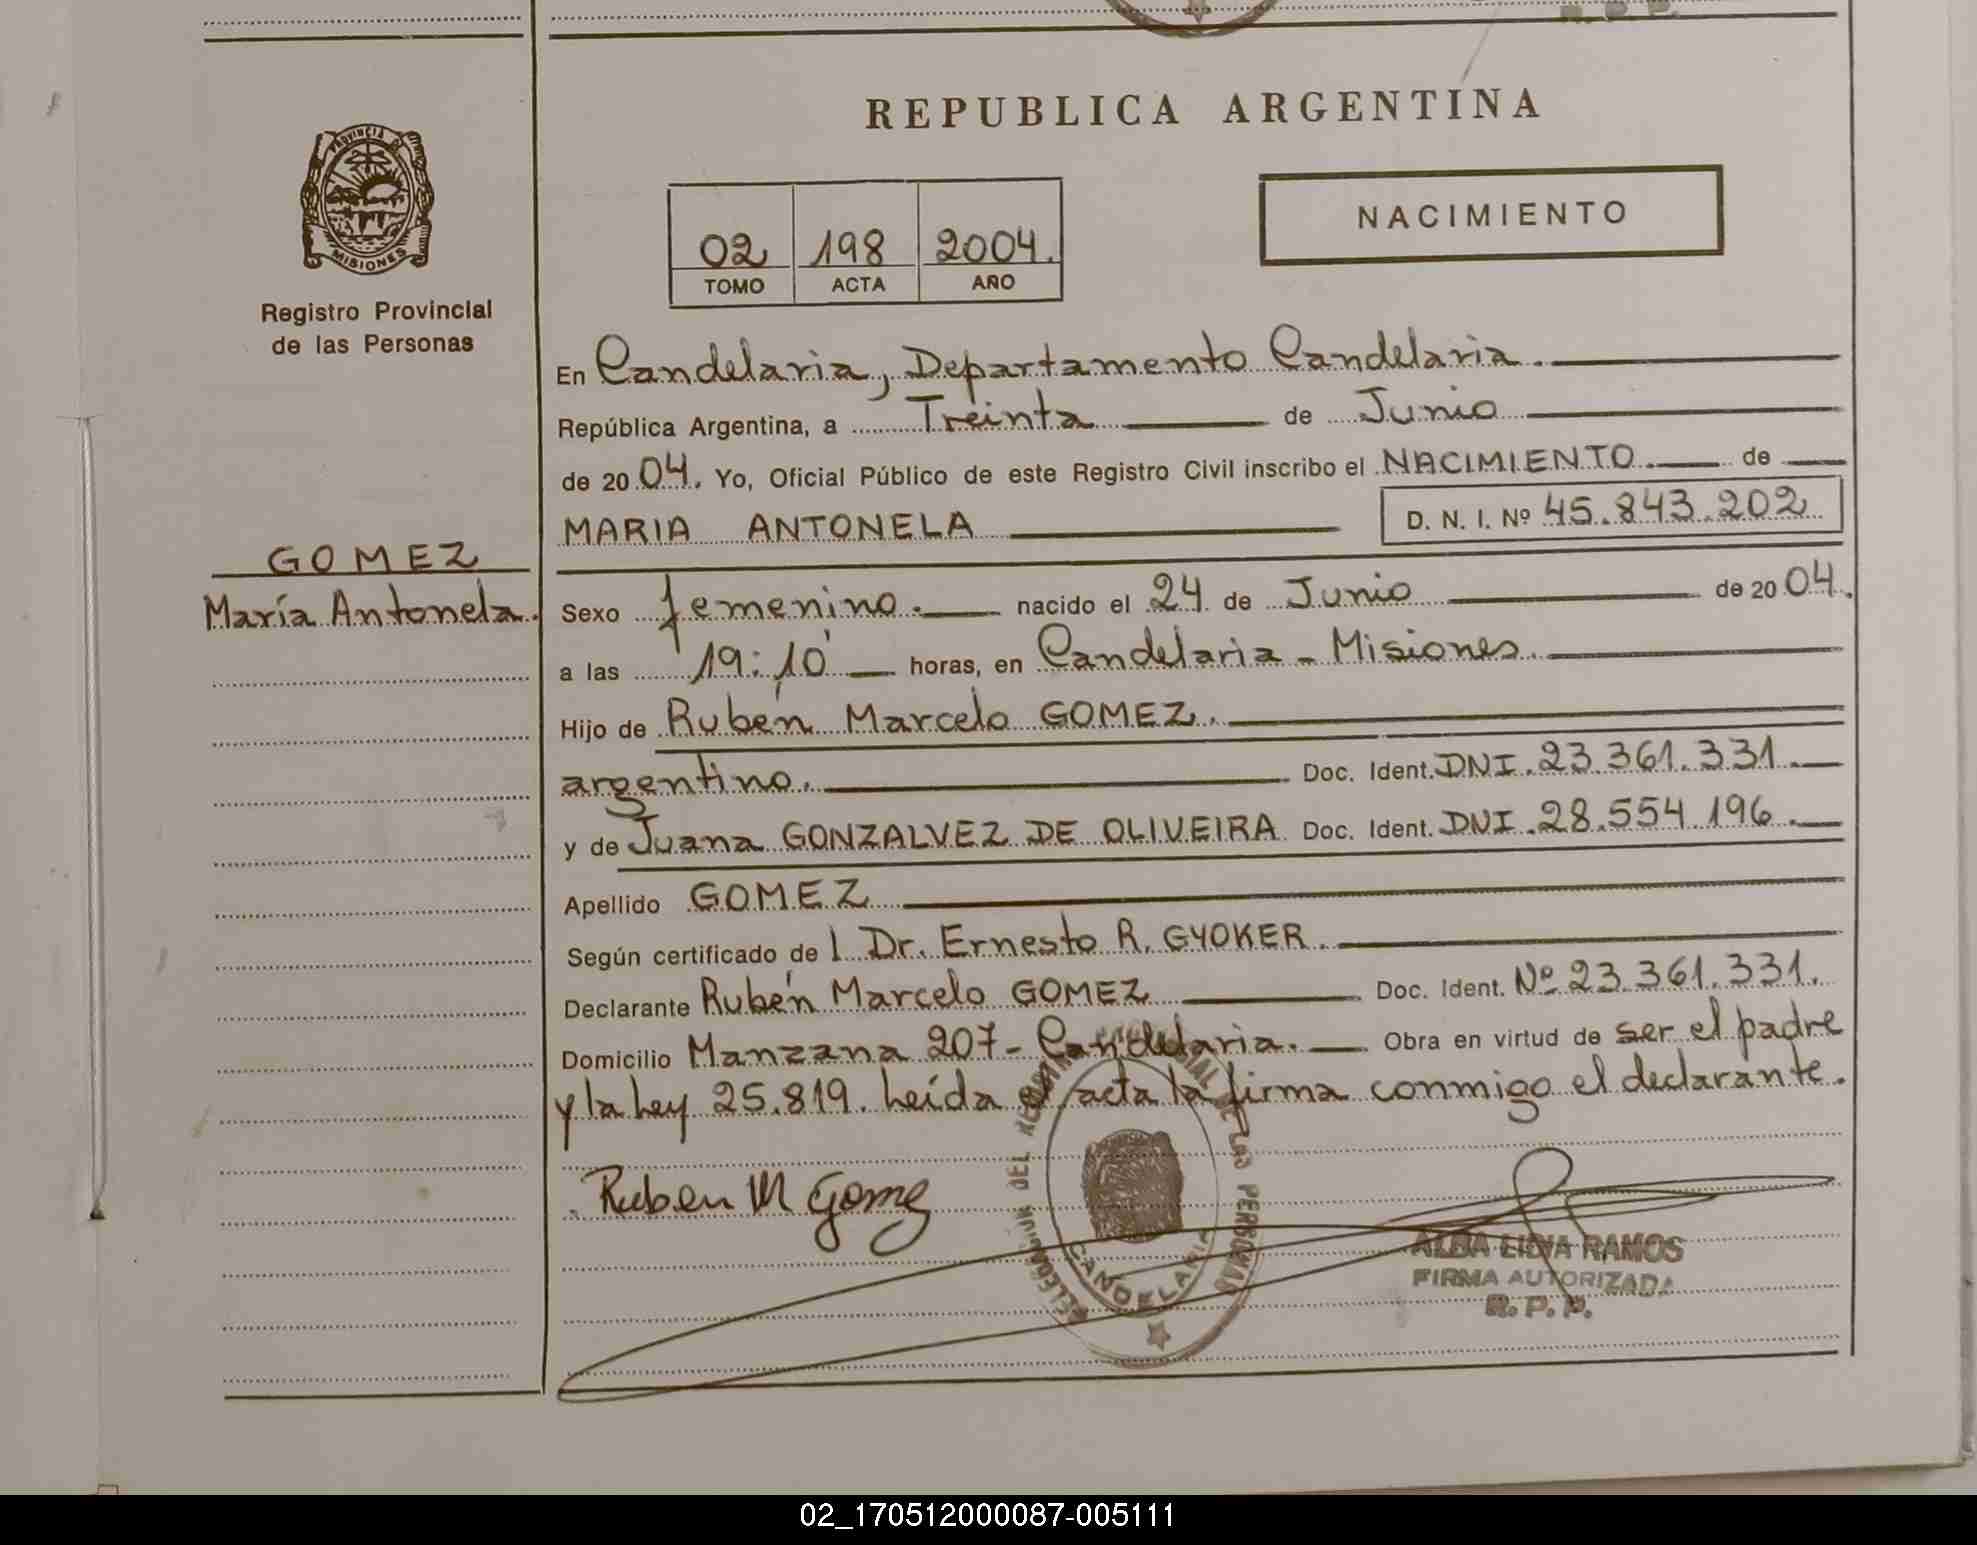 R. P. P.
REPUBLICA ARGENTINA
PROVINCIA DE
MISIONES
Registro Provincial
de las Personas
NACIMIENTO
02 198 2004.
TOMO ACTA AÑO
En Candelaria, Departamento Candelaria.
República Argentina, a Treinta de Junio
de 2004. Yo, Oficial Público de este Registro Civil inscribo el NACIMIENTO de
MARIA ANTONELA D. N. I. Nº 45.843.202
GOMEZ
María Antonela.
Sexo femenino. nacido el 24 de Junio de 2004.
a las 19:10 horas, en Candelaria - Misiones.
Hijo de Rubén Marcelo GOMEZ.
argentino. Doc. Ident. DNI. 23.361.331
y de Juana GONZALVEZ DE OLIVEIRA Doc. Ident. DNI. 28.554.196.
Apellido GOMEZ
Según certificado de l Dr. Ernesto R. GYOKER.
Declarante Rubén Marcelo GOMEZ Doc. Ident. Nº 23.361.331.
Domicilio Manzana 207 - Candelaria. Obra en virtud de ser el padre
y la Ley 25.819. Leída el acta la firma conmigo el declarante.
Ruben M Gomez
DELEGACION DEL REGISTRO PROVINCIAL DE LAS PERSONAS
CANDELARIA
ALBA LIDIA RAMOS
FIRMA AUTORIZADA
R. P. P.
02_170512000087-005111